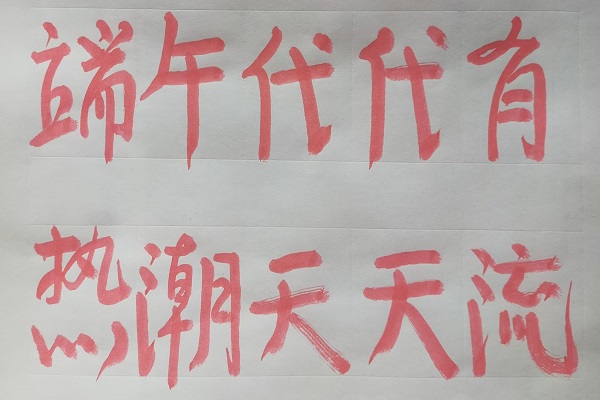 端午代代有
热潮天天流